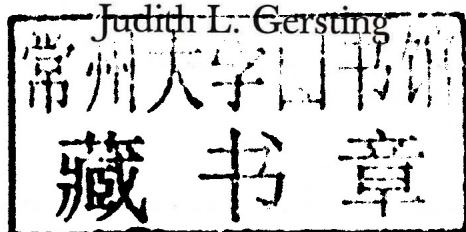 Judith L. Gersting
常州大学图书馆
藏书章